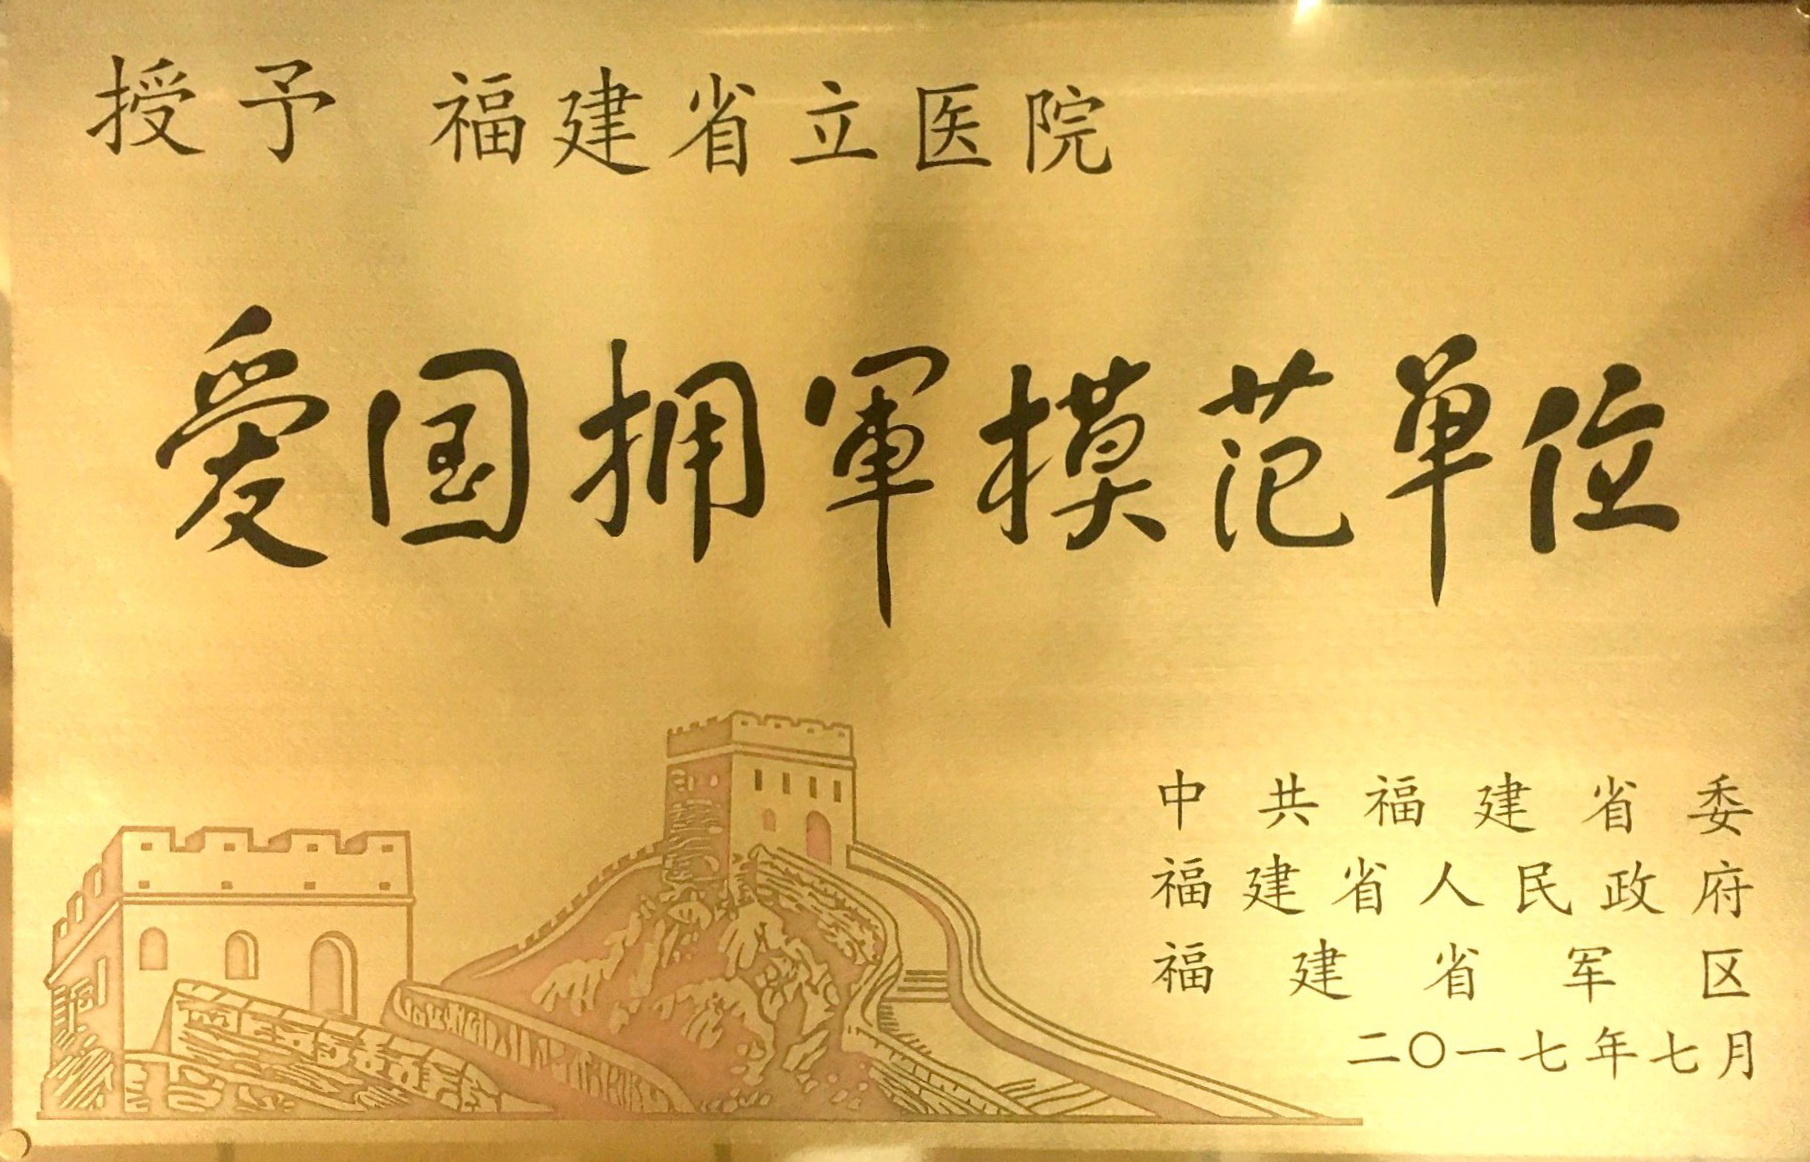 授予 福建省立医院
爱国拥軍模范单位
中共福建省委
福建省人民政府
福建省军区
二〇一七年七月